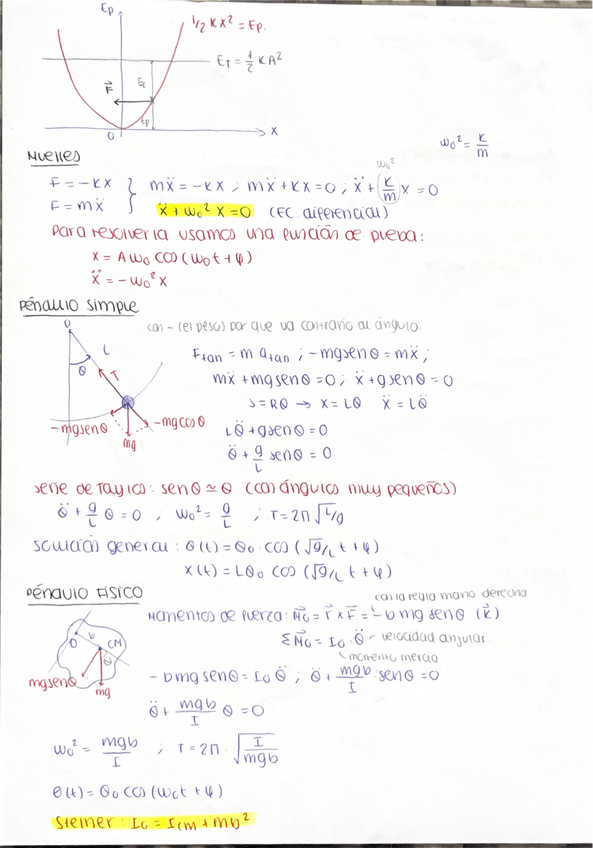 Ep
1/2 KX² = Ep.
E_T = 1/2 KA²
F⃗
Ec
Ep
O
X
ω₀² = K/m
MUELLES
ω₀²
F = -KX } mẍ = -KX ; mẍ + KX = 0 ; ẍ + (K/m) X = 0
F = mẍ } ẍ + ω₀² X = 0 (EC. diferencial)
Para resolverla usamos una función de prueba:
X = Aω₀ cos(ω₀t + φ)
ẍ = -ω₀² X
PÉNDULO SIMPLE
con - (el peso) por que va contrario al ángulo.
O
L
θ
T
-mgsenθ
mg
-mgcosθ
F_tan = m a_tan ; -mgsenθ = mẍ ;
mẍ + mgsenθ = 0 ; ẍ + gsenθ = 0
S = Rθ → X = Lθ ẍ = Lθ̈
Lθ̈ + gsenθ = 0
θ̈ + g/L senθ = 0
serie de Taylor: senθ ≃ θ (con ángulos muy pequeños)
θ̈ + g/L θ = 0 ; ω₀² = g/L ; T = 2π √L/g
Solución general: θ(t) = θ₀ · cos(√g/L t + φ)
X(t) = Lθ₀ cos(√g/L t + φ)
PÉNDULO FÍSICO
con la regla mano derecha
Momentos de fuerza: M⃗o = r⃗ × F⃗ = -b mg senθ (k⃗)
ΣM⃗o = Io · θ̈ - velocidad angular
momento inercia
O
b
CM
θ
mgsenθ
mg
-bmgsenθ = Io θ̈ ; θ̈ + mgb/I senθ = 0
θ̈ + mgb/I θ = 0
ω₀² = mgb/I ; T = 2π · √I/mgb
θ(t) = θ₀ cos(ω₀t + φ)
Steiner: Io = Icm + mb²